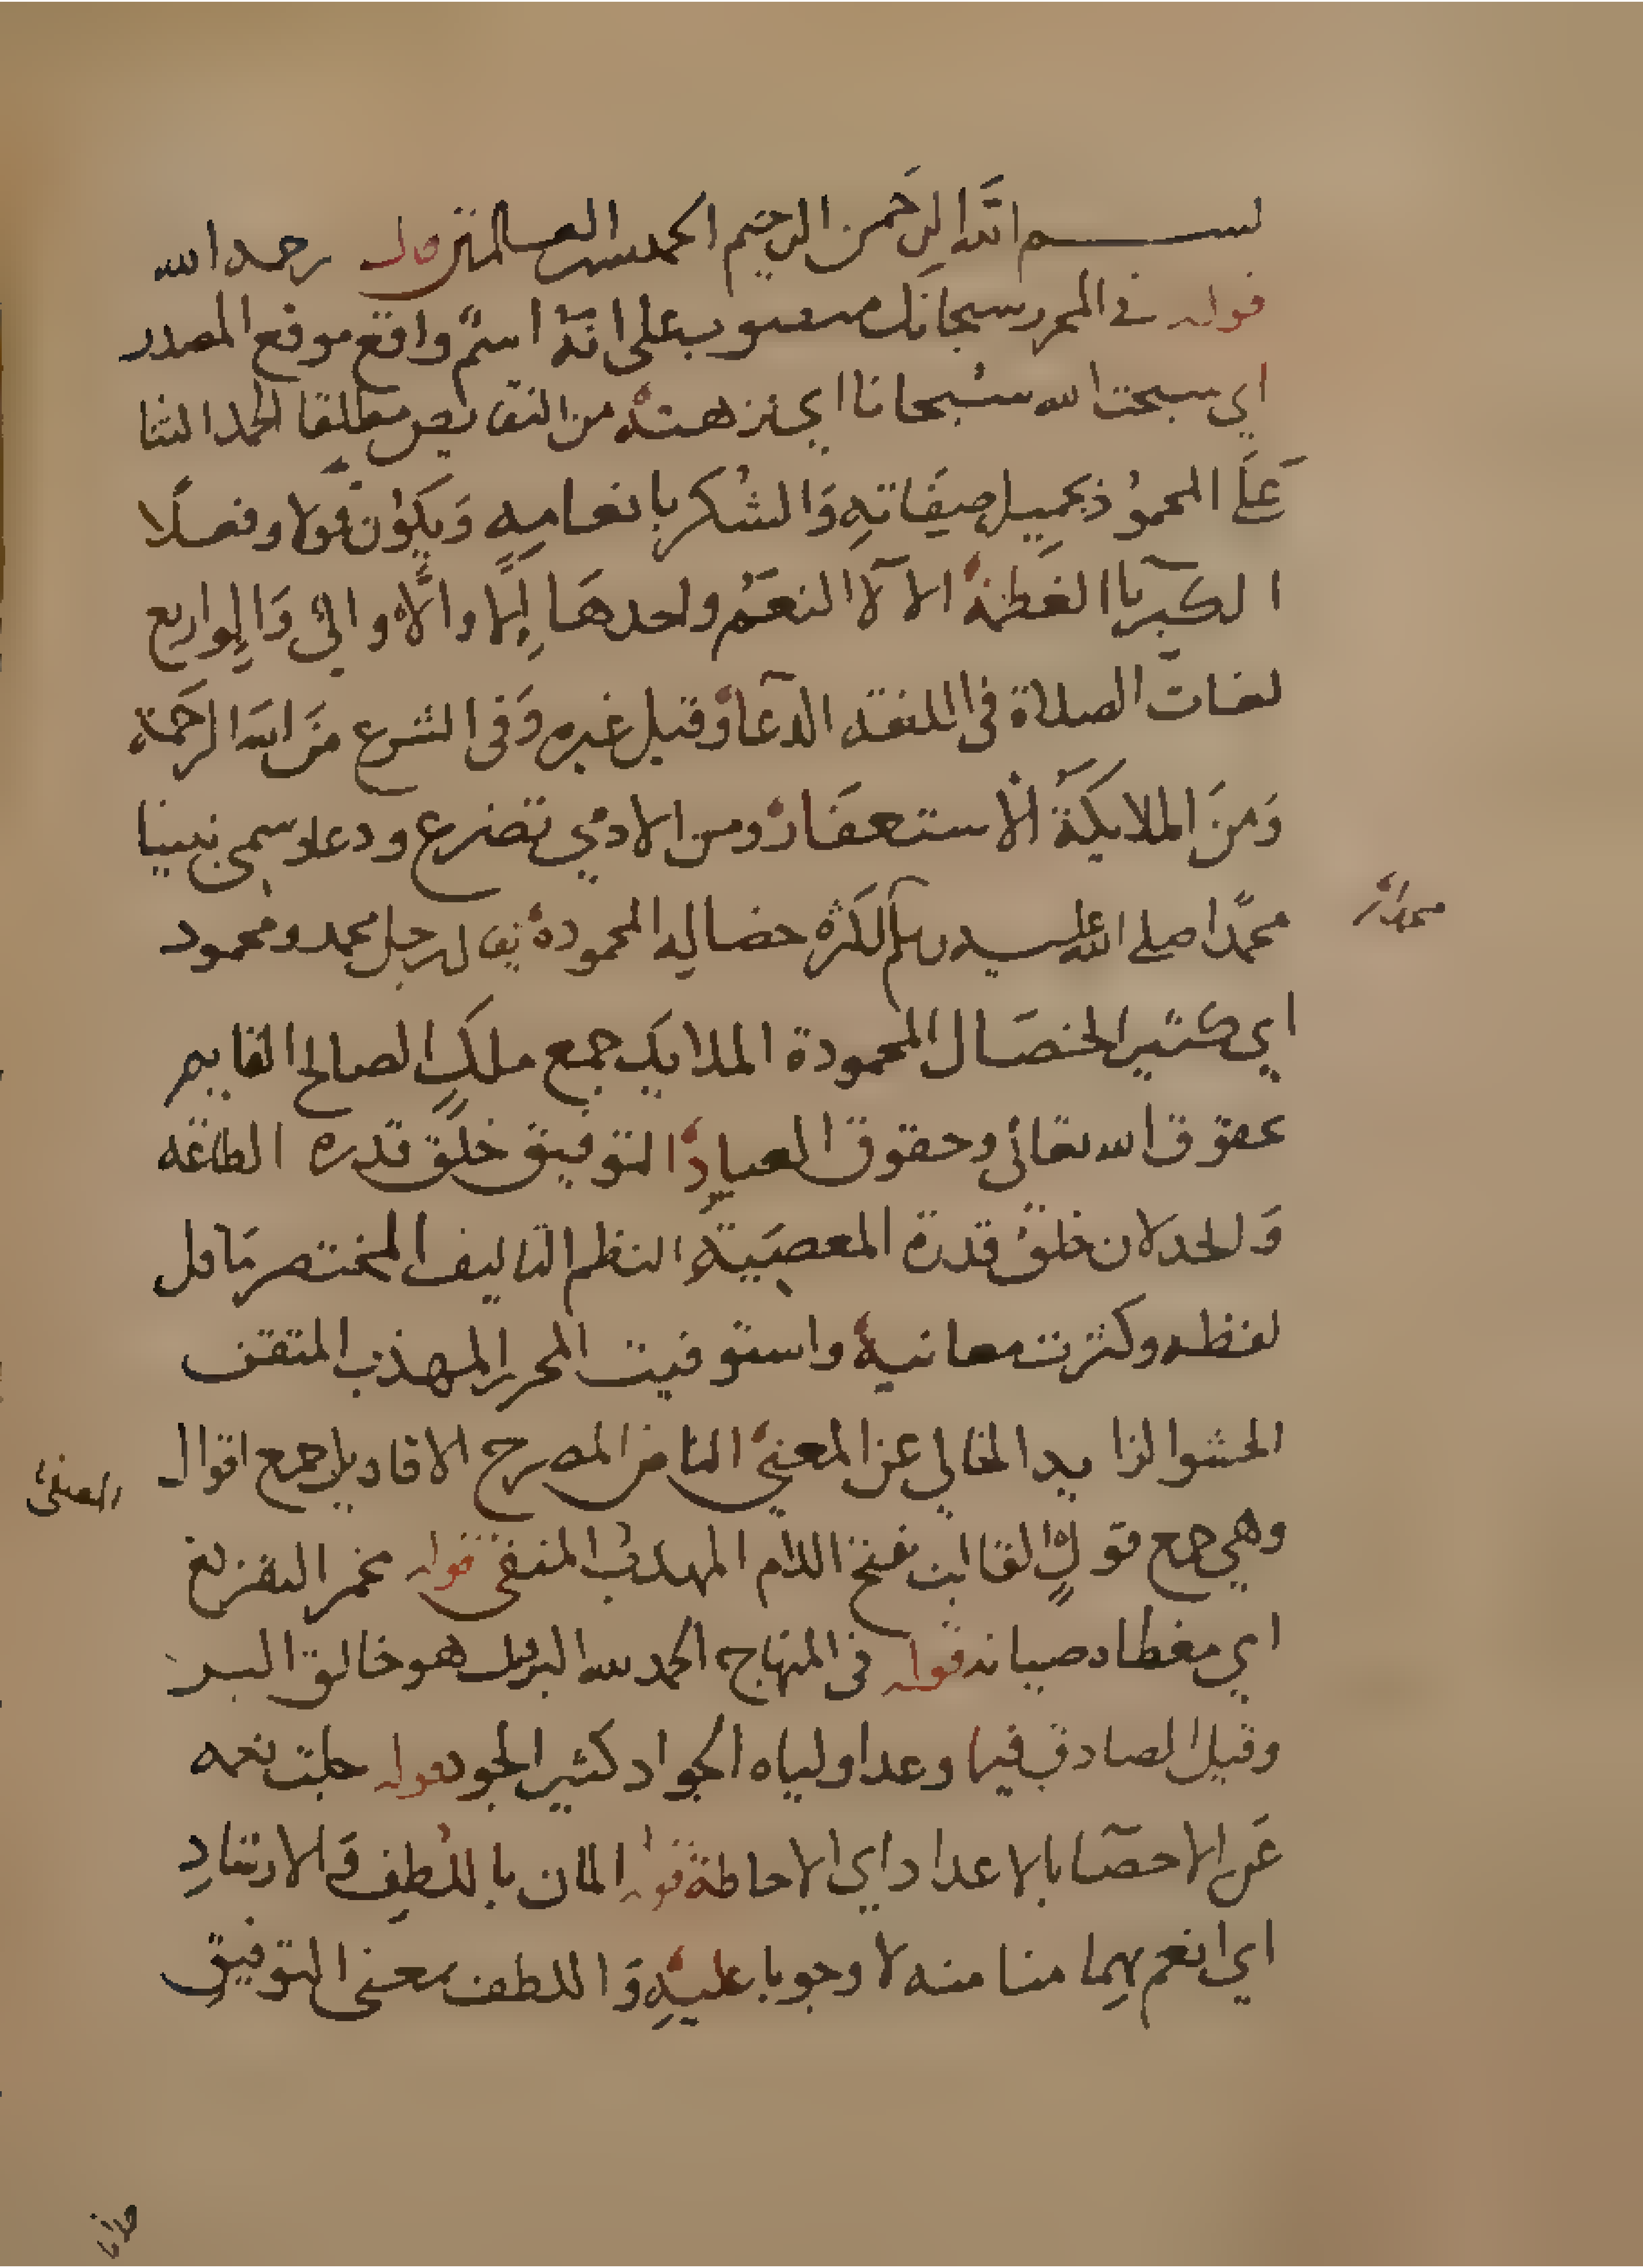 بســـم الله الرحمن الرحيم الحمد لله رب العالمين قال رحمه الله
قوله في المحرر سبحانك منصوب على انه اسم واقع موقع المصدر
اي سبحت الله سبحانا اي نزهته من النقايص مطلقا الحمد الثنا
على المحمود بجميل صفاته والشكر بانعامه ويكون قولا وفعلا
الكبريا العظمة الالا النعم واحدها إلا وألا والى وإلو اربع
لغات الصلاة في اللغة الدعا وقيل غيره وفي الشرع من الله الرحمة
ومن الملايكة الاستغفار ومن الادمي تضرع ودعا وسمي نبينا
محمدا صلى الله عليه وسلم لكثرة خصاله المحمودة يقال رجل محمد ومحمود
اي كثير الخصال المحمودة الملايك جمع ملك الصالح القايم
بحقوق الله تعالى وحقوق العباد التوفيق خلق قدرة الطاعة
والخذلان خلق قدرة المعصية النظم التاليف المختصر ما قل
لفظه وكثرت معانيه واستوفيت المحرر المهذب المتقن
الحشو الزايد الخالي عن المعنى الناض المصرح الاقاويل جمع اقوال
وهي جمع قول القالب بفتح اللام المهذب المنقى قوله مخمر التفريع
اي مغطاه صيانة قوله في المنهاج الحمد لله البر قيل هو خالق البر
وقيل الصادق فيما وعد اولياه الجواد كثير الجود قوله جلت نعمه
عن الاحصا بالاعداد اي الاحاطة قوله المان باللطف والارشاد
اي انعم بهما منا منه لا وجوبا عليه واللطف بمعنى التوفيق